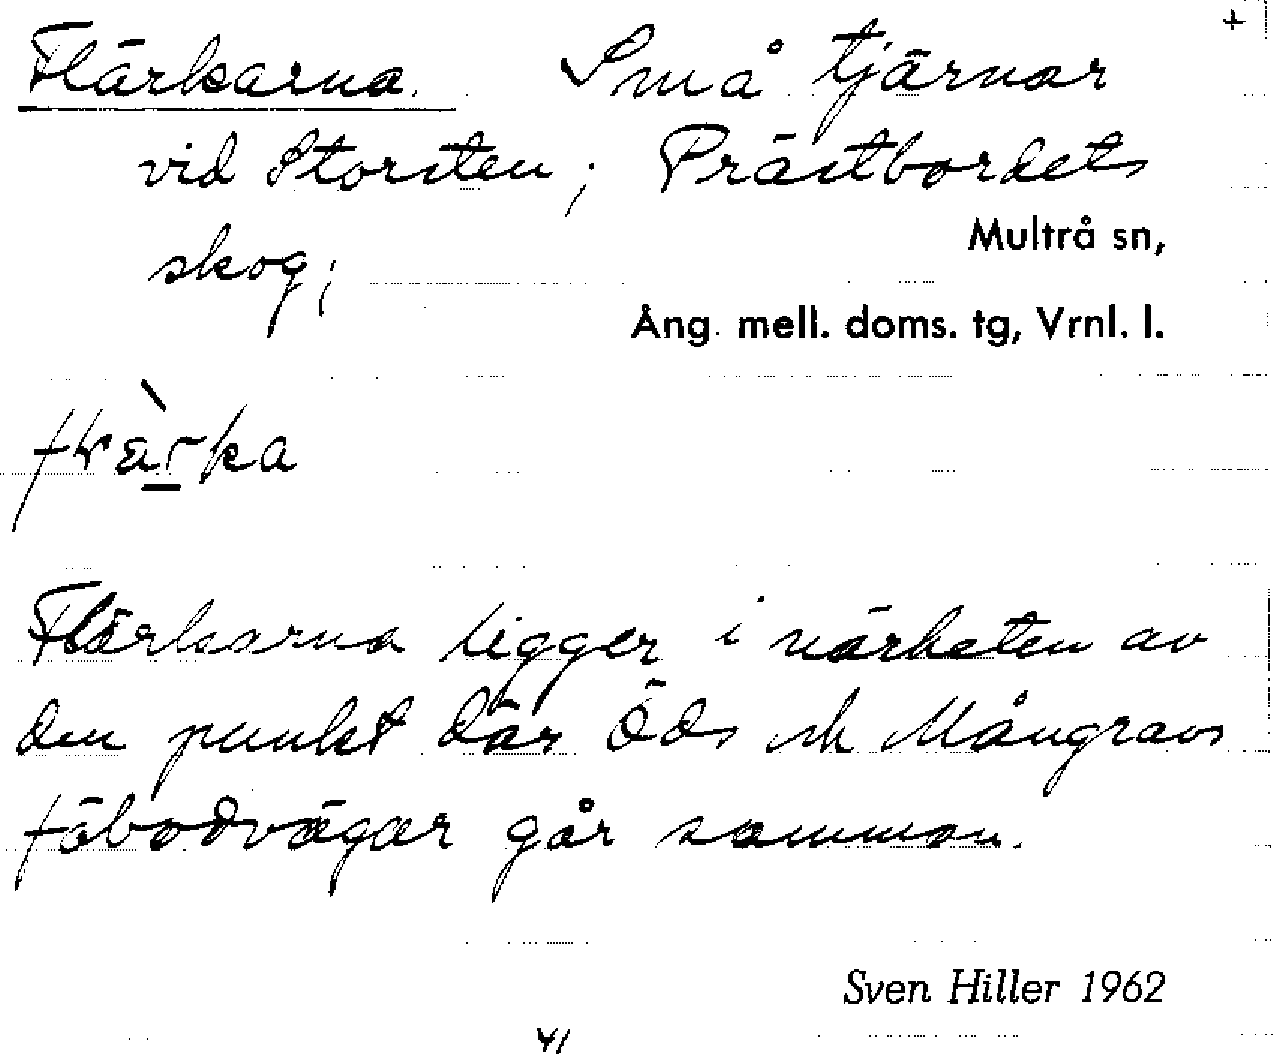 +
Flärkarna. Små tjärnar
vid Storsten; Prästbordets
skog;
Multrå sn,
Ång. mell. doms. tg, Vrnl. l.
Flärkarna ligger i närheten av
den punkt där Öds och Mångravs
fäbodvägar går samman.
Sven Hiller 1962